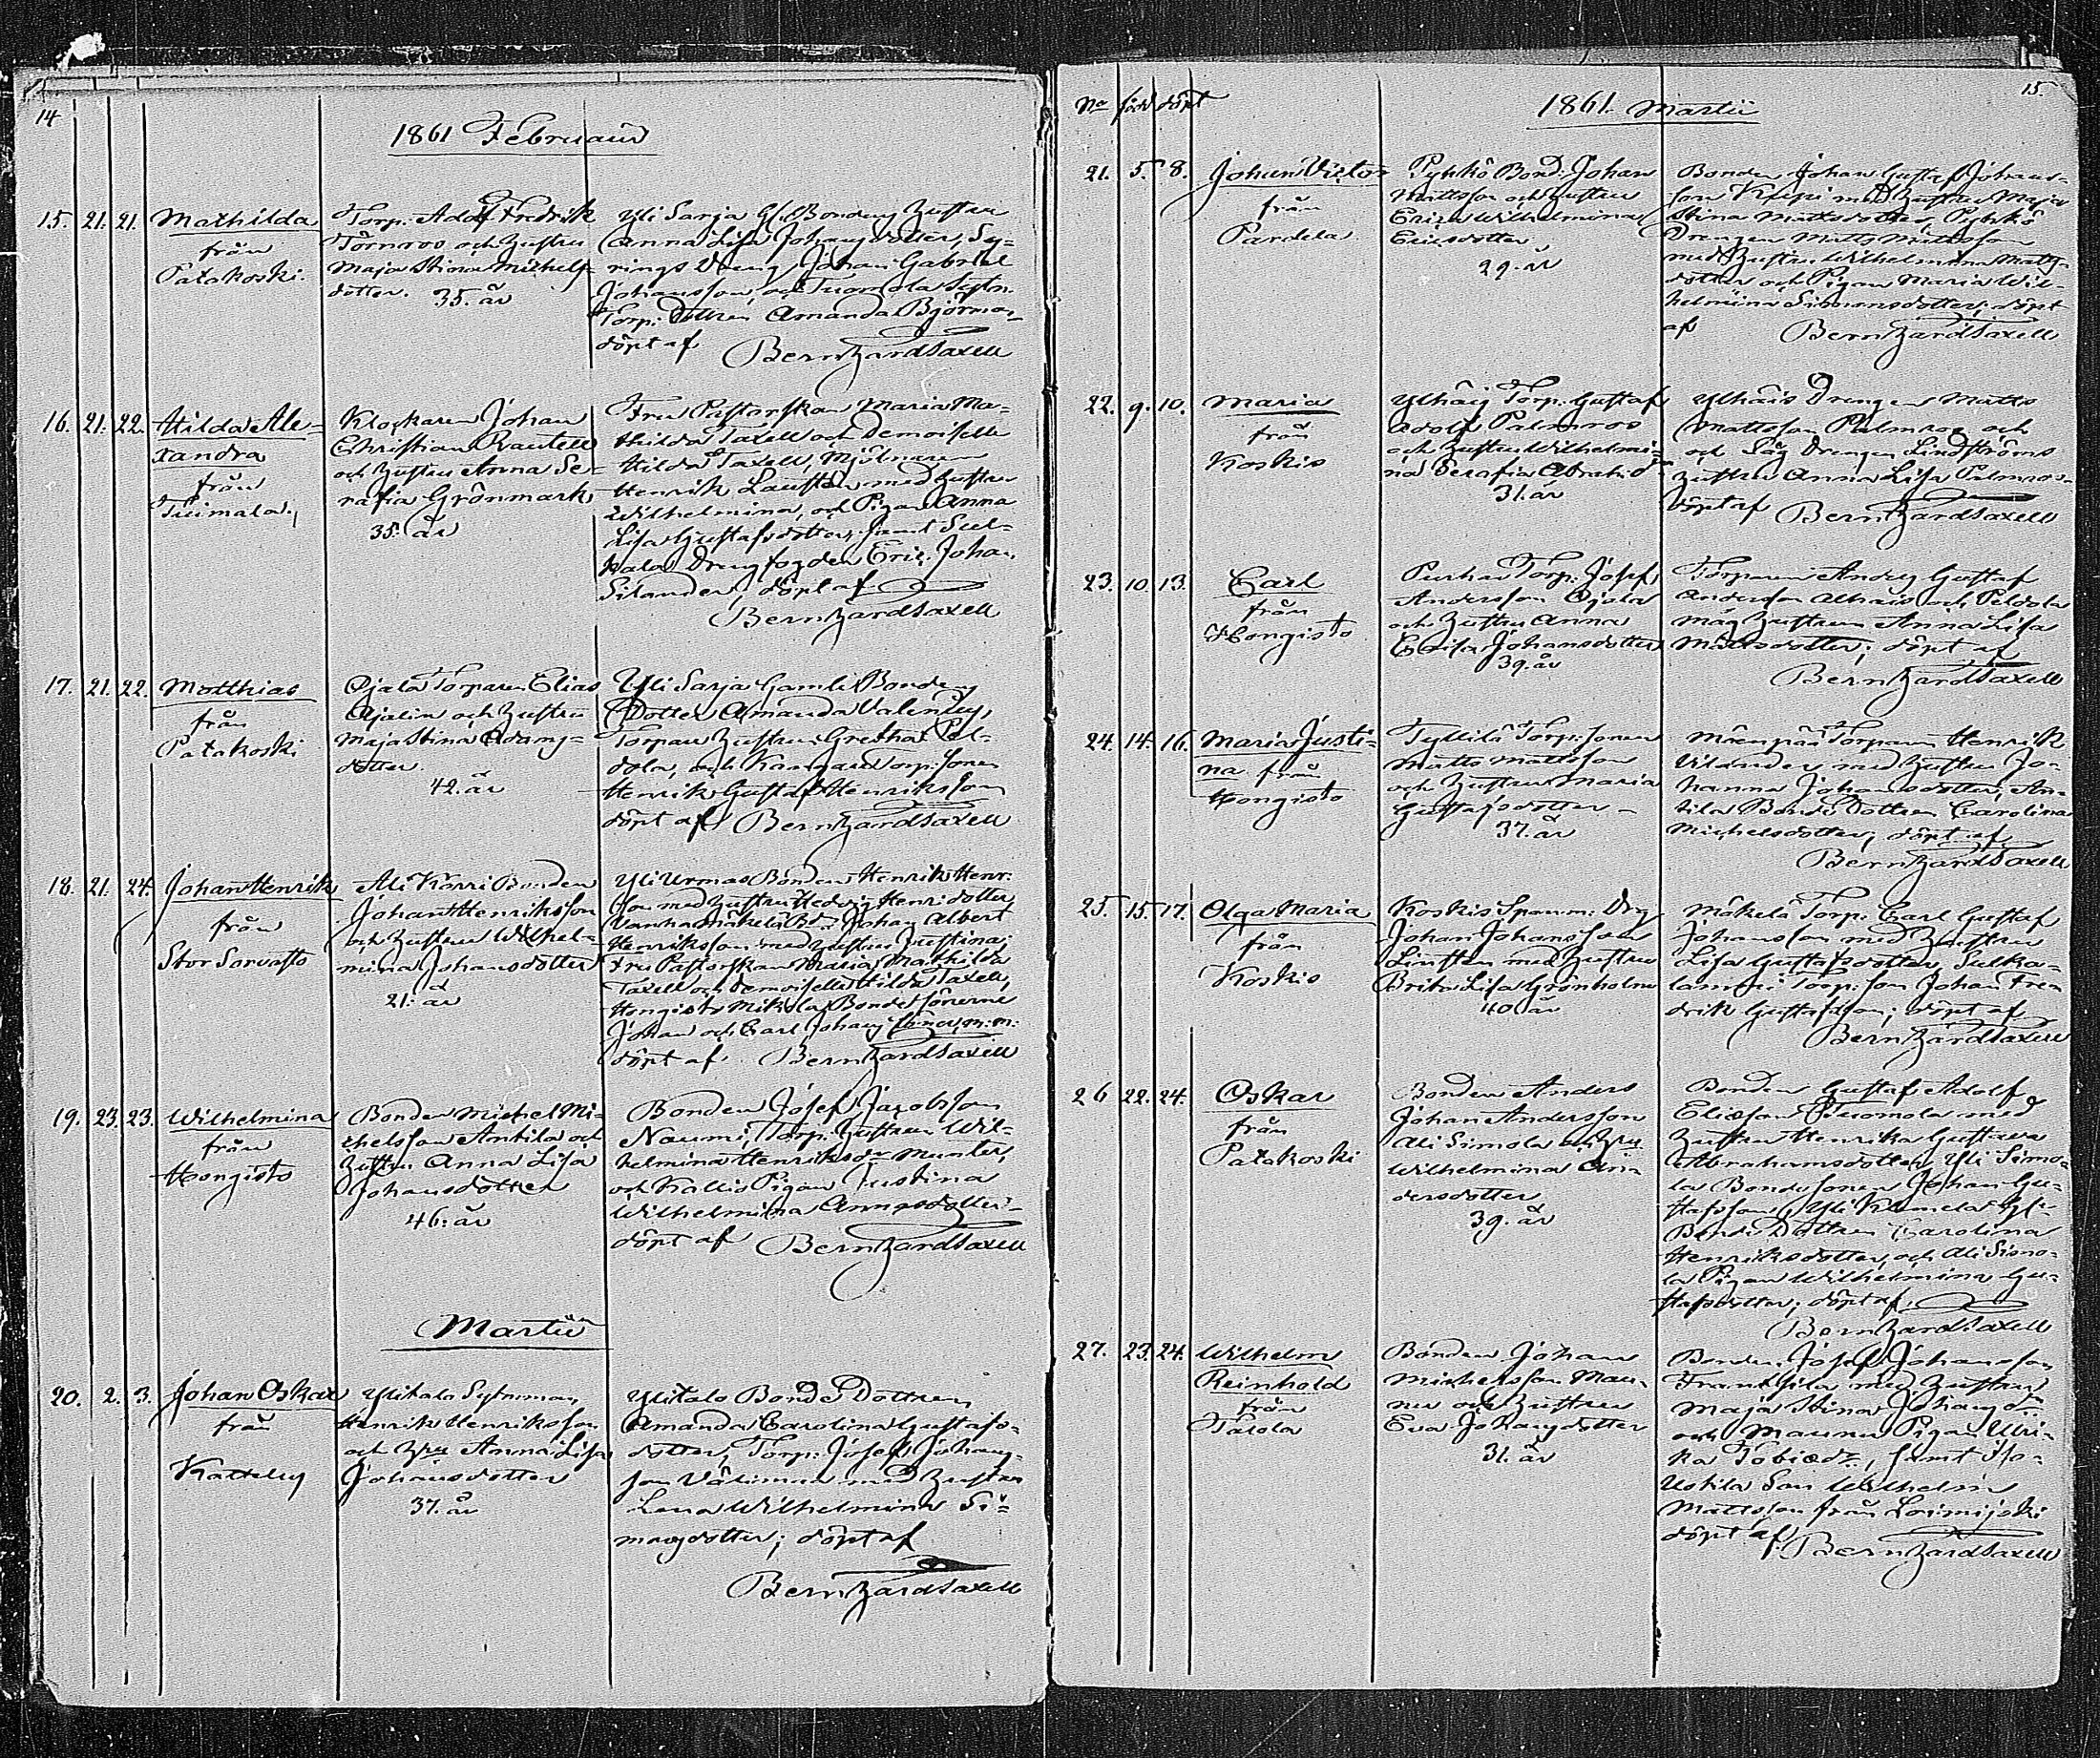 14
1861 Februarii
15. 21. 21. Mathilda
från
Patakoski.
Torp. Adolf Fredrik
Törnroos och hustru
Maja Stina Michels-
dotter. 35. år
Yli Sarja Gl. Bondens hustru
Anna Lisa Johansdotter, Sy-
rings Dreng Johan Gabriel
Johansson, och Tuomola Sytn.
Torp. Dottren Amanda Björnroos
döpt af Bernhard Taxell
16. 21. 22. Hilda Ale-
xandra
från
Tuimala
Klockaren Johan
Christian Rautell
och hustru Anna Se-
rafia Grönmark,
35. år
Fru Pastorskan Maria Ma-
thilda Taxell och Demoiselle
Hilda Taxell, Mjölnaren
Henrik Lausten med hustru
Wilhelmina, och Pigan Anna
Lisa Gustafsdotter, samt
Drengfogden Eric Johan
Silander, döpt af
Bernhard Taxell
17. 21. 22. Matthias
från
Patakoski
Ojala Torparen Elias
Ojalin och hustru
Maja Stina Adams-
dotter.
42. år
Yli Sarja Gamle Bondens
Dotter Amanda
Torpare hustrun Gretha Pel-
dola, och Torp. Sonen
Henrik Gustaf Henriksson
döpt af Bernhard Taxell
18. 21. 24. Johan Henrik
från
Stor Sorvasto
Ali Körri Bonden
Johan Henriksson
och hustru Wilhel-
mina Johansdotter
21. år
Yli Urmas Bonden Henrik Henr:
son med hustru Hedvig Henr:dotter,
Vanhamäkelä Bd. Johan Albert
Henriksson med hustru Justina;
Fru Pastorskan Maria Mathilda
Taxell och Demoiselle Hilda Taxell,
Hongisto Mikola Bonde Sönerne
Johan och Carl Johans Söner, m. m.
döpt af Bernhard Taxell
19. 23. 23. Wilhelmina
från
Hongisto
Bonden Michel Mi-
chelsson Antila och
hustru Anna Lisa
Johansdotter
46. år
Bonden Josef Jacobsson
Naumi, Torp. hustrun Wil-
helmina Henriksdr Munter,
och Kallis Pigan Justina
Wilhelmina
döpt af Bernhard Taxell
Martii
20. 2. 3. Johan Oskar
från
Kattelus
Ylitalo Sytnman
Henrik Henriksson
och hru Anna Lisa
Johansdotter
37. år
Ylitalo Bonde Dottren
Amanda Carolina Gustafs-
dotter, Torp: Josef Johans-
son Välimaa med hustru
Lena Wilhelmina Si-
monsdotter; döpt af
Bernhard Taxell
15.
No född döpt
1861. Martii
21. 5. 8. Johan Victor
från
Pardela
Pyhkö Bond. Johan
Mattsson och hustru
Erica Wilhelmina
Ericsdotter
29. år
Bonden Johan Gustaf Johans-
son med hustru Maja
Stina Mattsdotter, Pyhkö
Drengen Matts Mattsson
med hustru Wilhelmina Matts-
dotter och Pigan Maria Wil-
helmina Simonsdotter; döpt
af Bernhard Taxell
22. 9. 10. Maria
från
Koskis
Ylhäis Torp. Gustaf
Adolf Palmroos
och hustru Wilhelmi-
na Serafia Abrah.d.
31. år
Ylhäis Drengen Matts
Mattsson Palmroos och
och Såg Drengen Lindströms
hustru Anna Lisa Palmroos
döpt af Bernhard Taxell
23. 10. 13. Carl
från
Hongisto
Purha Torp. Josef
Andersson Ojala
och hustru Anna
Lovisa Johansdotter
39. år
Torparen Anders Gustaf
Andersson Alhais och Peldola
måg hustrun Anna Lisa
Mattsdotter; döpt af
Bernhard Taxell
24. 14. 16. Maria Justi-
na från
Hongisto
Tyllilä Torp: Sonen
Matts Mattsson
och hustru Maria
Gustafsdotter
37. år
Mäenpää Torparen Henrik
Vilander med hustru Jo-
hanna Johansdotter, An-
tila Bonde Dottren Carolina
Michelsdotter; döpt af
Bernhard Taxell
25. 15. 17. Olga Maria
från
Koskis
Koskis Spanm: Drg
Johan Johansson
Linsten med hustru
Brita Lisa Grönholm
40. år
Mäkelä Torp. Carl Gustaf
Johansson med hustru
Lisa Gustafsdotter, Sulka-
lammi Torp: son Johan Fre-
drik Gustafsson; döpt af
Bernhard Taxell
26 22. 24. Oskar
från
Patakoski
Bonden Anders
Johan Andersson
Ali Simola och hru
Wilhelmina An-
dersdotter
39. år
Bonden Gustaf Adolf
Eliasson Tuomola med
hustru Henrika Gustava
Abrahamsdotter, Yli Simo-
la Bonde Sonen Johan Gu-
stafsson, Yli Gl:
Bonde Dottren Carolina
Henriksdotter, och Ali Simo-
la Pigan Wilhelmina Gu-
stafsdotter; döpt af
Bernhard Taxell
27. 23. 24. Wilhelm
Reinhold
från
Talola
Bonden Johan
Michelsson Mau-
nu och hustru
Eva Johansdotter
31. år
Bonden Josef Johansson
Franssila med hustru
Maja Stina Johansdr
och Maunu Pigan Ulri-
ka Tobiedr, samt Iso-
Uotila Son Wilhelm
Mattsson från Loimijoki
döpt af Bernhard Taxell